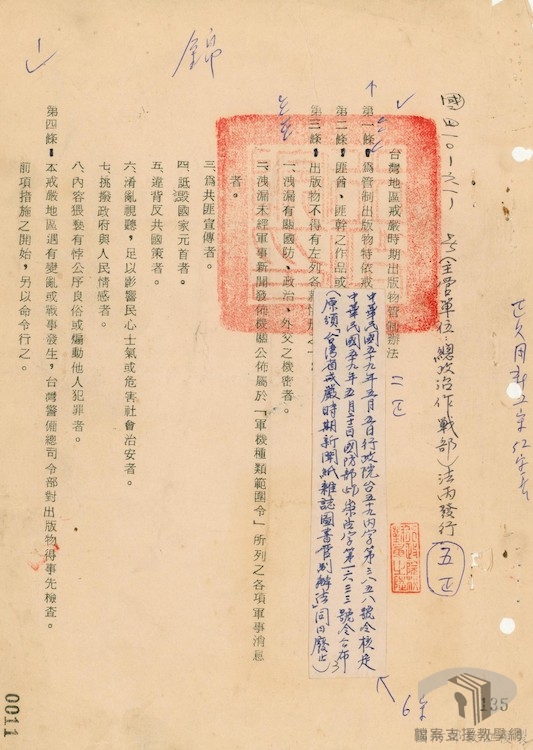 國四一〇一之一
号(主管單位：總政治作戰部)法丙發行
五正
台灣地區戒嚴時期出版物管制辦法
二正
中華民國五十九年五月五日行政院台五十九內字第三八五八號令核定
中華民國五十九年五月廿二日國防部
崇法字第一六三三號令公布
(原頒「台灣省戒嚴時期新聞紙雜誌圖書管制辦法」同日廢止)
第一條：為管制出版物特依戒
第二條：匪酋、匪幹之作品或
第三條：出版物不得有左列各
一、洩漏有關國防、政治、外交之機密者。
二、洩漏未經軍事新聞發佈機關公佈屬於「軍機種類範圍令」所列之各項軍事消息
者。
三、為共匪宣傳者。
四、詆譭國家元首者。
五、違背反共國策者。
六、淆亂視聽，足以影響民心士氣或危害社會治安者。
七、挑撥政府與人民情感者。
八、內容猥褻有悖公序良俗或煽動他人犯罪者。
第四條：本戒嚴地區遇有變亂或戰事發生，台灣警備總司令部對出版物得事先檢查。
前項措施之開始，另以命令行之。
錦
0011
135
檔案支援教學網